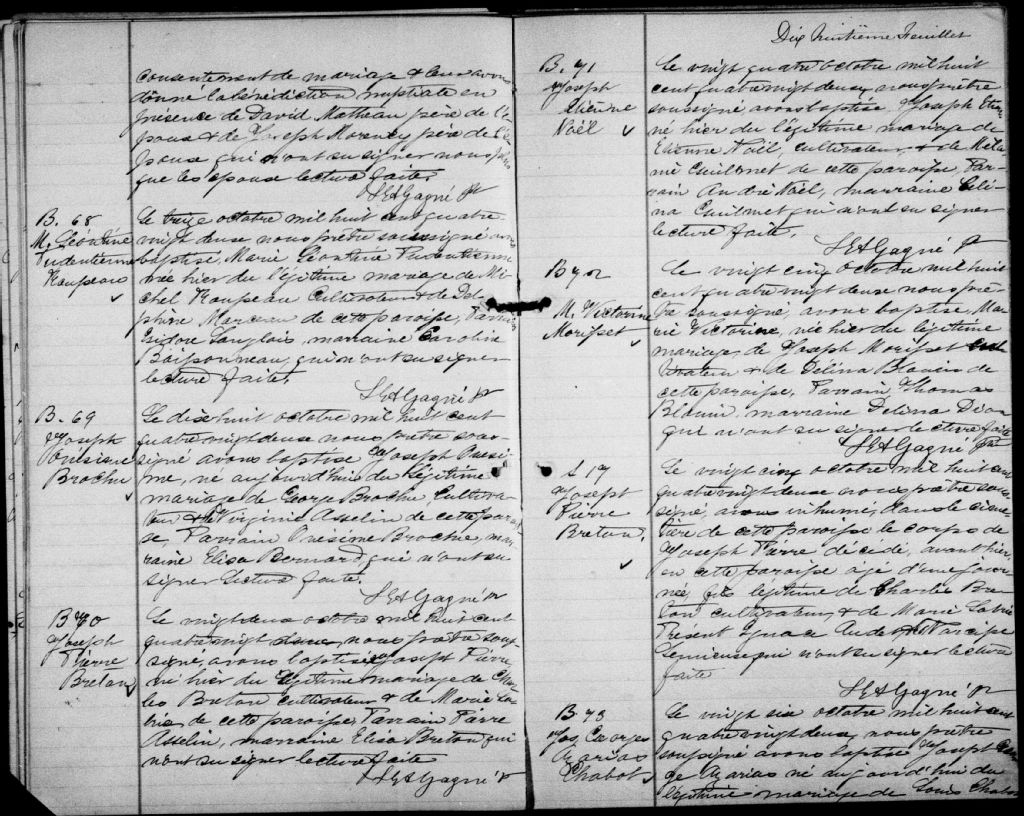 consentement de mariage & leur avons
donné la bénédiction nuptiale en
présence de David Mathieu père de l'é-
poux & de Joseph Morency père de l'é-
pouse qui n'ont su signer nous
que les époux lecture faite.
L E A Gagné Ptr
B. 68
M. Léontine
Pudentienne
Rousseau
Le treize octobre mil huit cent quatre-
vingt deux nous prêtre soussigné avons
baptisé Marie Léontine Pudentienne
née hier du légitime mariage de Mi-
chel Rousseau Cultivateur & de Del-
phine Marceau de cette paroisse, Parrain
Isidore Langlois, marraine Caroline
Boissonneau, qui n'ont su signer
lecture faite.
L E A Gagné Ptr
B. 69
Joseph
Onésime
Brochu
Le dix huit octobre mil huit cent
quatre vingt deux nous prêtre sous-
signé avons baptisé Joseph Onési-
me, né aujourd'hui du légitime
mariage de George Brochu, Cultiva-
teur & de Virginie Asselin de cette parois-
se, Parrain Onésime Brochu, mar-
raine Elisa Bernard, qui n'ont su
signer lecture faite.
L E A Gagné Ptr
B 70
Joseph
Pierre
Breton
Le vingt deux octobre mil huit cent
quatre vingt deux, nous prêtre sous-
signé, avons baptisé Joseph Pierre
né hier du légitime mariage de Char-
les Breton cultivateur & de Marie La-
brie de cette paroisse, Parrain Pierre
Asselin, marraine Elisa Breton qui
n'ont su signer lecture faite
L E A Gagné Ptr
Dix huitième Feuillet
B. 71
Joseph
Etienne
Noël
Le vingt quatre octobre mil huit
cent quatre vingt deux nous prêtre
soussigné avons baptisé Joseph Etienne
né hier du légitime mariage de
Etienne Noël, cultivateur, & de Méla-
nie Guilmet de cette paroisse, Par-
rain André Noël, marraine Céli-
na Guilmet qui n'ont su signer
lecture faite.
L E A Gagné Ptr
B 72
M. Victorine
Morisset
Le vingt cinq octobre mil huit
cent quatre vingt deux nous prê-
tre soussigné, avons baptisé, Ma-
rie Victorine, née hier du légitime
mariage de Joseph Morisset Culti-
vateur & de Délina Blouin de
cette paroisse, Parrain Thomas
Blouin, marraine Delina Dion
qui n'ont su signer lecture faite
L E A Gagné Ptr
S 17
Joseph
Pierre
Breton
Le vingt cinq octobre mil huit cent
quatre vingt deux nous prêtre sous-
signé, avons inhumé, dans le cime-
tière de cette paroisse le corps de
Joseph Pierre décédé, avant hier,
en cette paroisse âgé d'une jour-
née, fils légitime de Charles Bre-
ton cultivateur, & de Marie Labrie
Présent Ignace Audet & Narcisse
Lemieux qui n'ont su signer lecture
faite
L E A Gagné Ptr
B 73
Jos, George
Marias
Chabot
Le vingt six octobre mil huit cent
quatre vingt deux, nous prêtre
soussigné avons baptisé Joseph Geor-
ge Marias né aujourd'hui du
légitime mariage de Louis Chabot